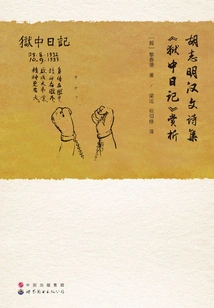 胡志明汉文诗集
《狱中日记》赏析
[越] 黎春德 著
梁远 祝仰修 译
獄中日記
29.8.1932
10.9.1933
身体在獄中
精神在獄外
欲成大事業
精神更要大
中国出版集团
世界图书出版公司